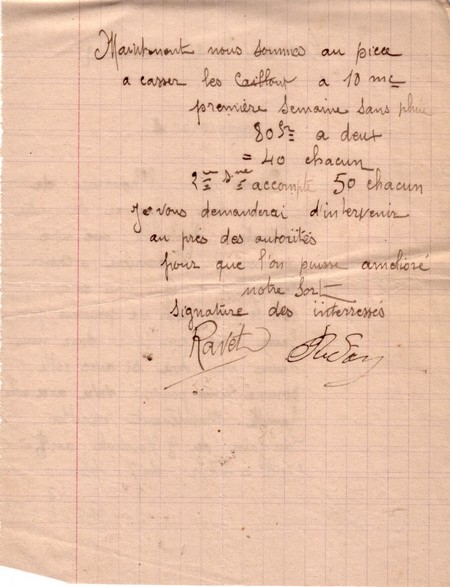 Maintenant nous sommes au piece
a casser les Cailloux a 10 mc
première semaine sans pluie
80 frs a deux
= 40 chacun
2eme sme accompte 50 chacun
Je vous demanderai d'intervenir
au prés des autoriités
pour que l'on puisse amélioré
notre Sort
Signature des interressés
Ravet